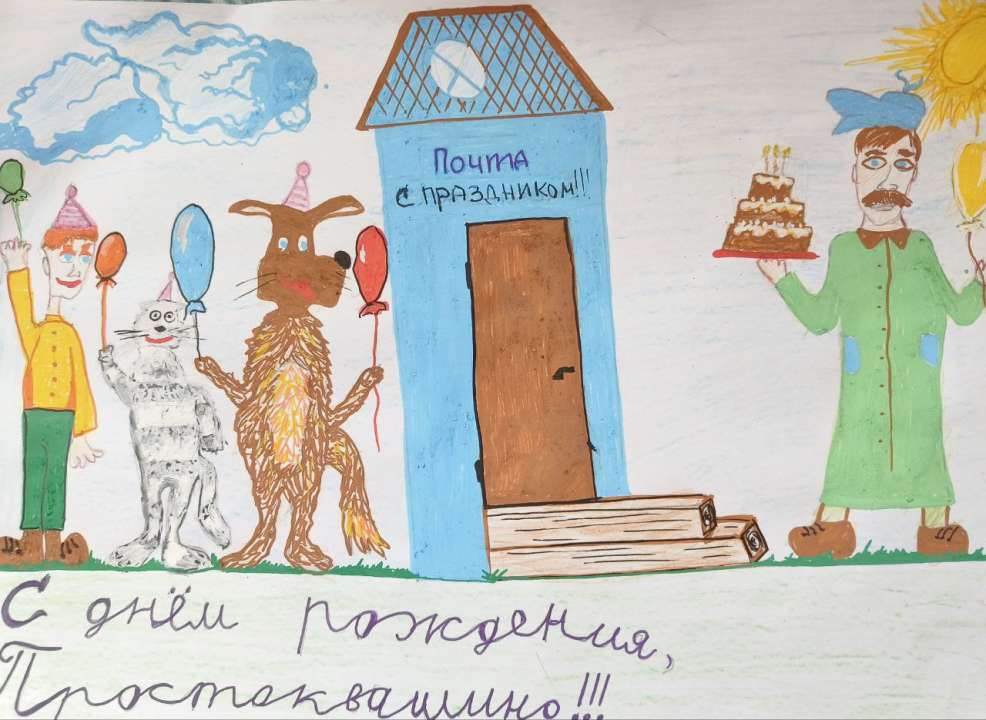 Почта
С ПРАЗДНИКОМ!!!
С днём рождения,
Простоквашино!!!